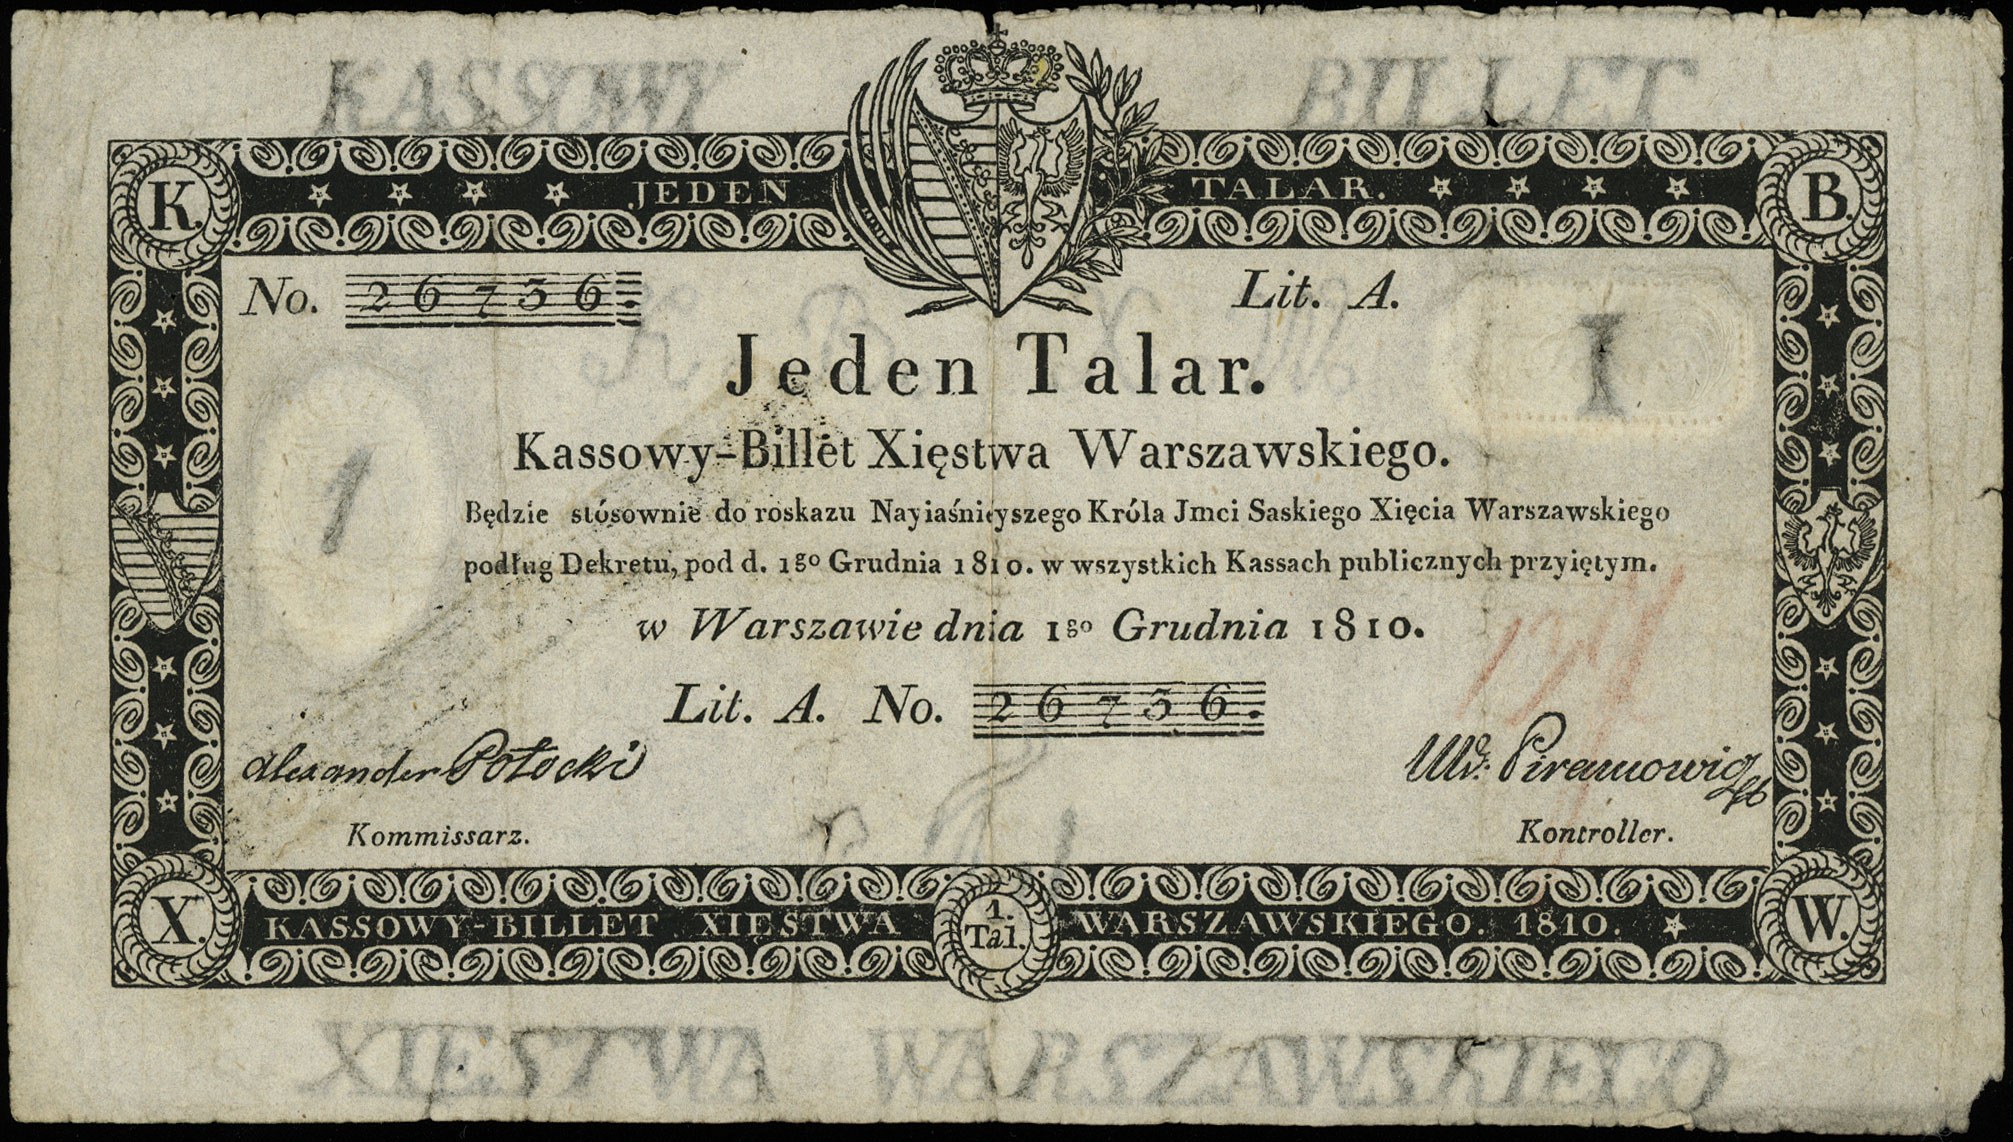 KASSOWY BILLET
K. JEDEN TALAR. B.
No. 26736. Lit. A.
1
Jeden Talar.
Kassowy-Billet Xięstwa Warszawskiego.
1
Będzie stósownie do roskazu Nayiaśnieyszego Króla Jmci Saskiego Xięcia Warszawskiego
podług Dekretu, pod d. 1go Grudnia 1810. w wszystkich Kassach publicznych przyiętym.
w Warszawie dnia 1go Grudnia 1810.
Lit. A. No. 26736.
Alexander Potocki
Kommissarz.
Piramowicz
Kontroller.
X. KASSOWY-BILLET XIĘSTWA 1. Tal. WARSZAWSKIEGO. 1810. W.
XIĘSTWA WARSZAWSKIEGO